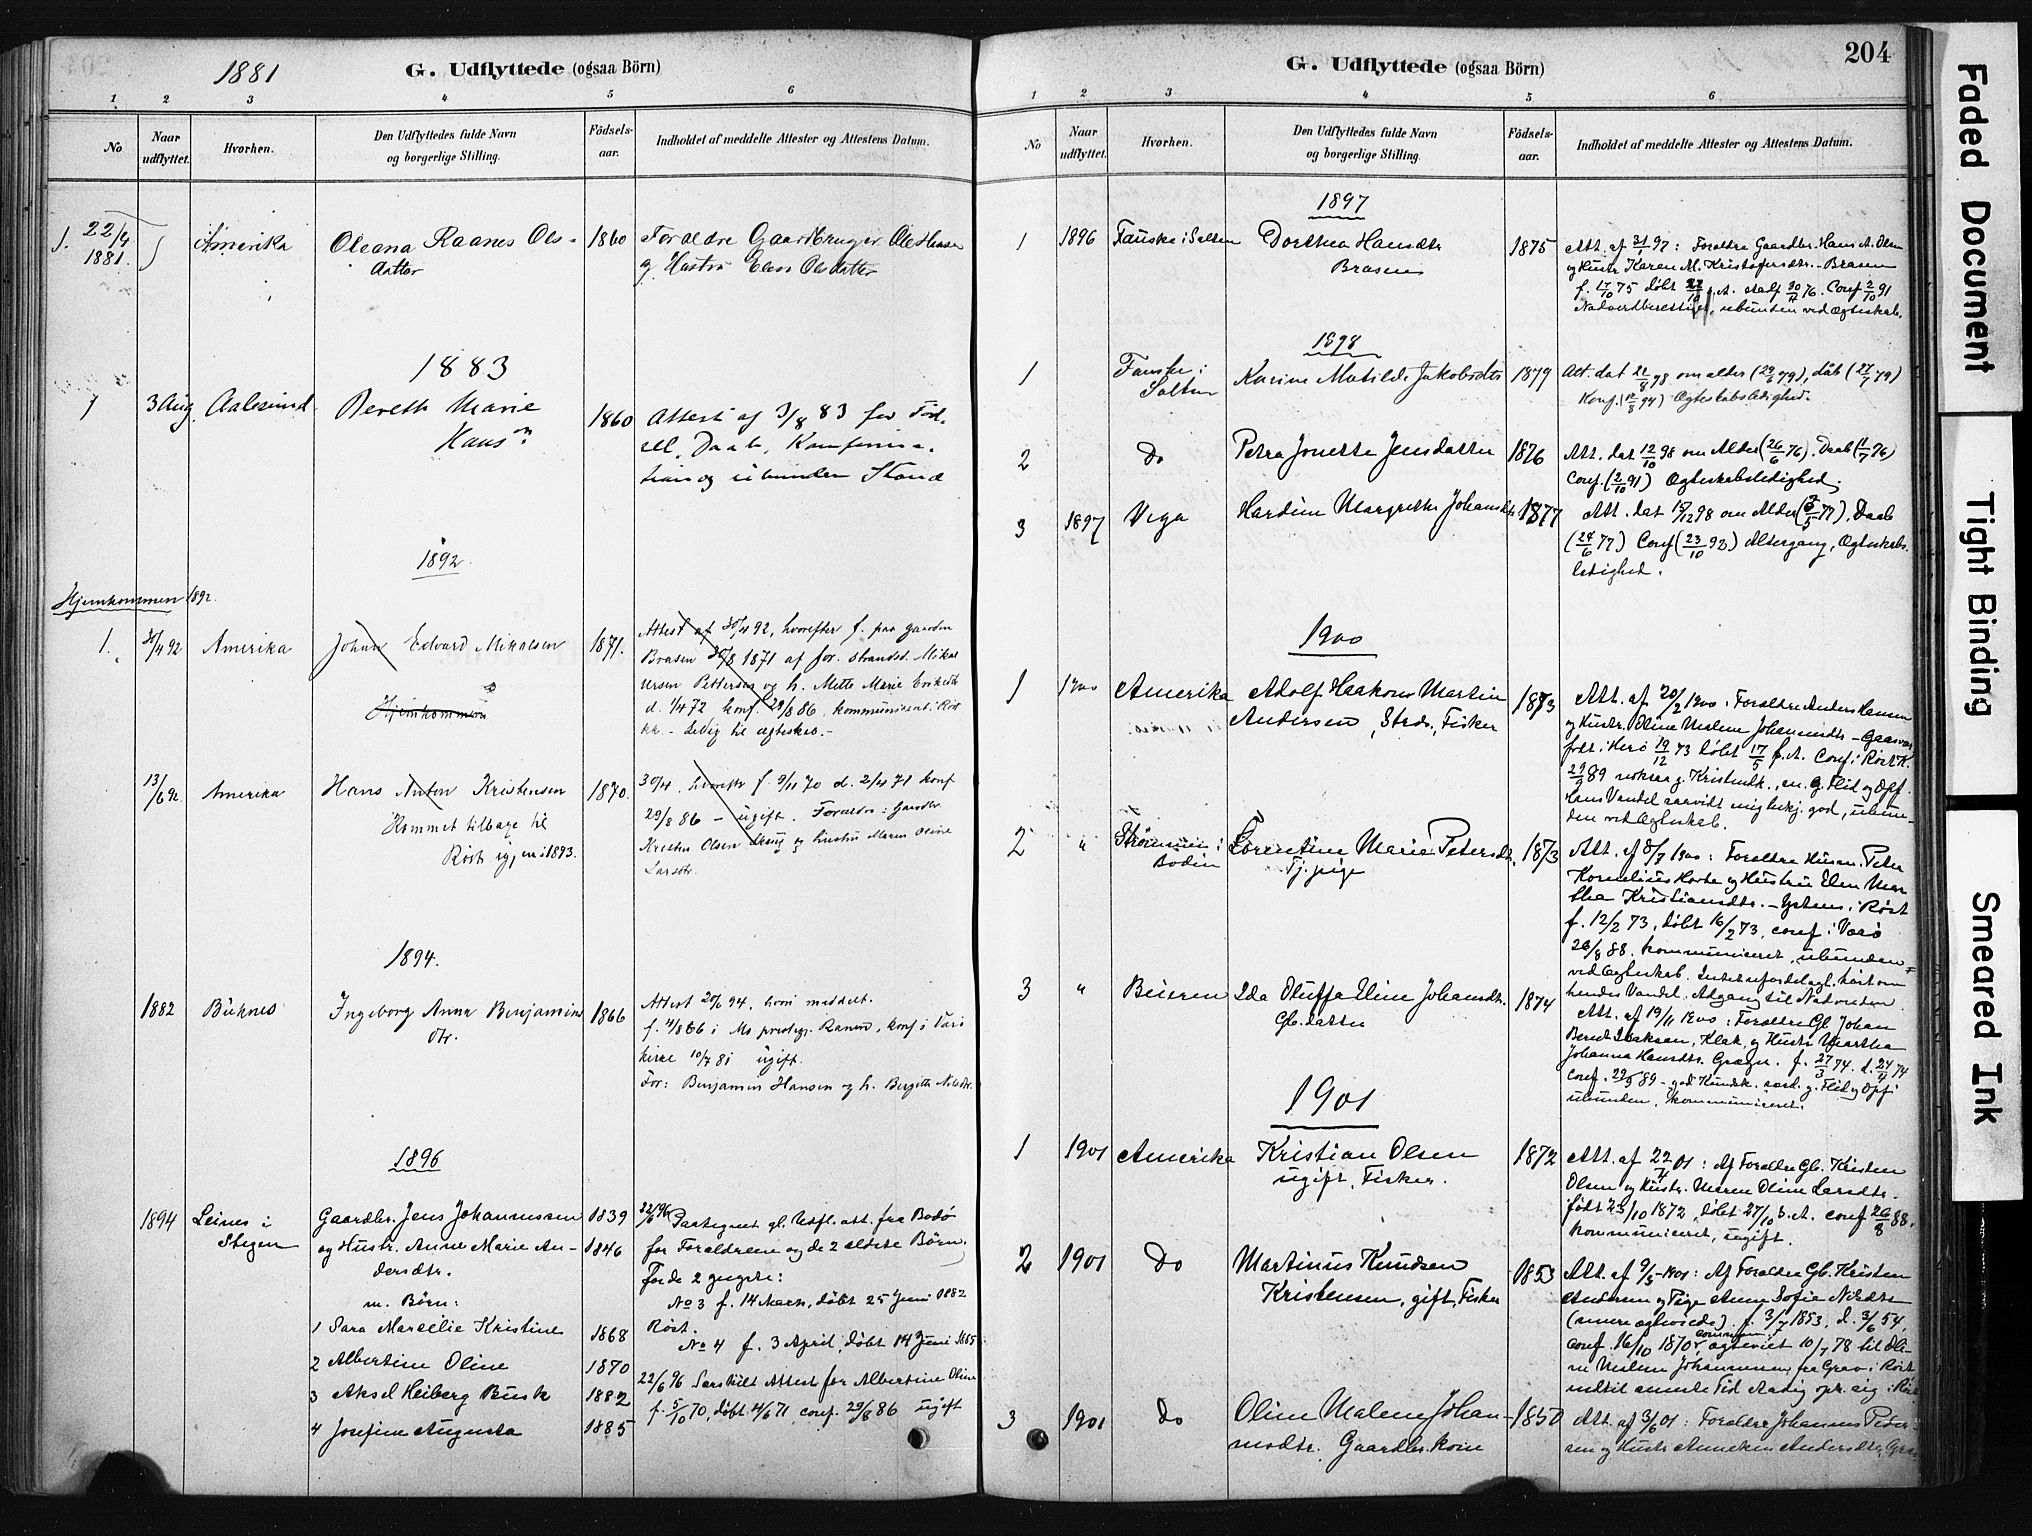 1881
G. Udflyttede (ogsaa Börn)
1 2 3 4 5 6
No
Naar udflyttet.
Hvorhen.
Den Udflyttedes fulde Navn
og borgerlige Stilling.
Födsels-
aar.
Indholdet af meddelte Attester og Attestens Datum.
1. 22/4 1881. Amerika Oleana Raanes Ols- 1860 Foraldre Gaardbruger Ole Hansen
datter og Hustru Elen Olsdatter
1883
1 3 Aug. Aalesund Bereth Marie 1860 Attest af 3/8 83 for Fød-
Hans sel, Daab, Konfirma-
tion og ubunden Stand
1892.
Hjemkommen 1892.
1. 30/4 92 Amerika Johan Edvard Mikalsen 1871. Attest af 30/4 92, hvorefter f. paa gaarden
Brasen 30/8 1871 af for. strandsd. Mikal
Pettersen og h. Mette Marie
Hjemkommen d. 1/4 72 konf 29/8 86. kommuniceret i Røst
kk. - Ledig til ægteskab. -
13/6 92 Amerika Hans Anton Kristensen 1870. 30/4. hvorefter f. 9/11 70 d. 2/4 71 konf
Kommet tilbage til 29/8 86 - ugift. Forældre: Gaardbr.
Røst igjen i 1893. Kristen Olsen og hustru Maren Oline
Larsdtr.
1894.
1882 Buknes Ingeborg Anna Benjamins 1866 Attest 20/6 94, hvori meddelt.
dtr. f. 11/8 66 i Mo præstegj. Ranen, konf i Værø
kirke 10/7 81 ugift.
For: Benjamin Hansen og h. Birgitte Nilsdtr.
1896
1894 Leines i Gaardbr. Jens Johannessen 1839 22/6 96 Paategnet gl. Udfl. att. fra Bodø
Steigen og Hustr. Anne Marie An- 1846 for Forældrene og de 2 ældste Børn.
dersdtr. For de 2 yngste:
m. Børn: No 3 f. 14 Marts, døbt 25 Juni 1882
1 Sara Marselie Kristine 1868 Røst.
No 4 f. 3 April, døbt 14 Juni 1885
2 Albertine Oline 1870 22/6 96 Særskilt Attest for Albertine Oline
3 Aksel Heiberg Busk 1882 f. 5/10 70, døbt 4/6 71, conf. 29/8 86 ugift
4 Josefine Augusta 1885
G. Udflyttede (ogsaa Börn)
204
1 2 3 4 5 6
No
Naar udflyttet.
Hvorhen.
Den Udflyttedes fulde Navn
og borgerlige Stilling.
Födsels-
aar.
Indholdet af meddelte Attester og Attestens Datum.
1897
1 1896 Fauske i Salten Dorthea Hansdtr 1875 Att. af 3/1 97: Forældre Gaardbr. Hans A. Olsen
Brasen og Hustr. Karen M. Kristofersdtr. - Brasen
f. 17/10 75 døbt s. A. Conf 2/10 91
Nadverdberettiget, ubunden ved Ægteskab.
1898
1 Fauske i Karine Matilde Jakobsdtr 1879 Att. dat 21/8 98 om alder (29/6 79), dåb (27/7 79)
Salten Konf. (12/8 94) Ægteskabsledighed.
2 Do Petra Jonette Jensdatter 1876 Att. dat 12/10 98 om Alder (26/6 76), Daab (1/7 76)
Conf. (2/10 91) Ægteskabsledighed.
3 1897 Vega Hardine Margrethe Johansdtr 1877 Att. dat 19/12 98 om Alder ( /5 77), Daab
(24/6 77) Conf (23/10 92) Altergang, Ægteskabs-
ledighed.
1900
1 1900 Amerika Adolf Haakon Martin 1873 Att. af 20/2 1900: Forældre Anders Hansen
Andersen, Strds., Fisker og Hustr. Oline Malene Johannesdtr - Gaasvær
født i Herø 19/12 73 døbt 17/5 f. A. Conf. i Røst K.
29/9 89 nøksaa g. Kristendk., m. g. Flid og Opf.
Hans Vandel saavidt mig bekj. god, ubun-
den ved Ægteskab.
2 " Strømmen i Lorentine Marie Petersdt. 1873 Att. af 8/7 1900: Forældre Husm. Peter
Bodin Tj. pige Kornelius og Hustru Elen Mar
tha Kristiansdtr. - Ystnes i Røst
f. 12/2 73, døbt 16/2 73, conf i Værø
26/8 88. kommuniceret, ubunden
ved Ægteskab. Intet ufordelagt. hørt om
hendes Vandel. Adgang til Nadverden
3 " Beieren Ida Oluffa Eline Johansdtr. 1874 Att. af 19/11 1900: Forældre Gl. Johan
Gb. datter Berent Isaksen, Klak, og Hustr. Martha
Johanna Hansdtr. f. 27/3 74. d. 24/4 74
Conf. 29/9 89 - god Kundsk. g. Flid og Opf.
ubunden, kommuniceret.
1901
1 1901 Amerika Kristian Olsen 1872 Att. af 22/4 01: Af Forældre Gb. Kristen
ugift, Fisker. Olsen og Hustr. Maren Oline Larsdtr.
født 23/10 1872, døbt 27/10 s. A. conf 26/8 88.
kommuniceret, ugift.
2 1901 Do Martinus Knudsen 1853 Att. af 9/5 - 1901: Af Forældre Gb. Kristen
Kristensen, gift, Fisker Andersen og Pige Anne Sofie Nilsdtr
(senere ægteviede). f. 3/7 1853, d. 3/6 54
conf. 16/10 1870, ægteviet 10/7 78 til Oli-
ne Malene Johannesen fra Grav i Røst
indtil seneste Tid stadig opr. sig i Røst
3 1901 Do Oline Malene Johan- 1850 Att. af 3/6 01: Forældre Johannes Peder-
nesdtr. Gaardbr. kone sen og Hustr. Anneken Andersdtr,
Faded Document
Tight Binding
Smeared Ink